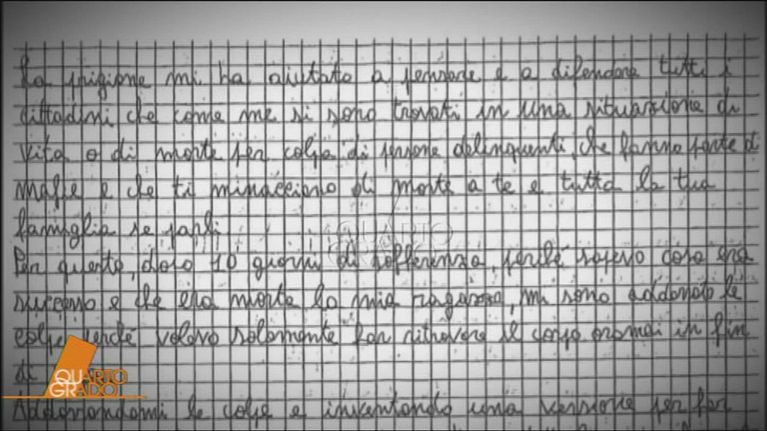 La prigione mi ha aiutato a pensare e a difendere tutti i
cittadini che come me si sono trovati in una situazione di
vita o di morte per colpa di persone delinquenti, che fanno parte di
mafie e che ti minacciano di morte a te e tutta la tua
famiglia se parli.
QUARTO
Per questo, dopo 10 giorni di sofferenza, perché sapevo cosa era
successo e che era morta la mia ragazza, mi sono addossato le
colpe perché volevo solamente far ritrovare il corpo oramai in fin
di
QUARTO
GRADO
Addossandomi le colpe e inventando una versione per far